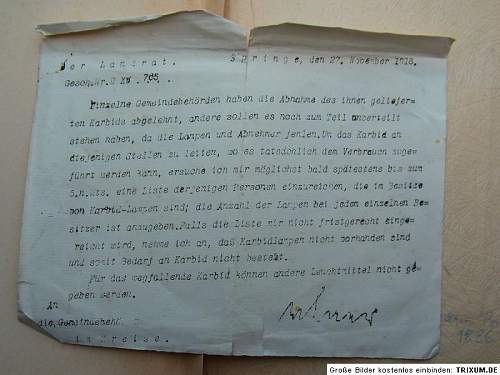 Der Landrat. Springe, den 27. November 1918.
Gesch.Nr. 765.
Einzelne Gemeindebehörden haben die Abnahme des ihnen geliefer-
ten Karbids abgelehnt, andere sollen es noch zum Teil unverteilt
stehen haben, da die Lampen und Abnehmer fehlen. Um das Karbid an
diejenigen Stellen zu leiten, wo es tatsächlich dem Verbrauch zuge-
führt werden kann, ersuche ich mir möglichst bald spätestens bis zum
5.n.Mts. eine Liste derjenigen Personen einzureichen, die im Besitze
von Karbid-Lampen sind; die Anzahl der Lampen bei jedem einzelnen Be-
sitzer ist anzugeben. Falls die Liste mir nicht fristgerecht einge-
reicht wird, nehme ich an, daß Karbidlampen nicht vorhanden sind
und somit Bedarf an Karbid nicht besteht.
Für das wegfallende Karbid können andere Leuchtmittel nicht ge-
geben werden.
An
die Gemeindebehö
im Kreise.
Große Bilder kostenlos einbinden: TRIXUM.DE